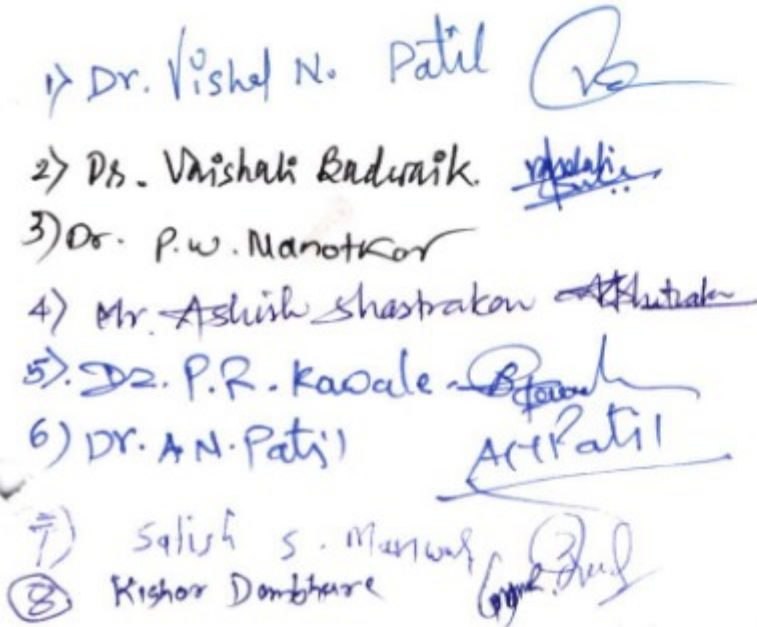 1) Dr. Vishal N. Patil
2) Dr. Vaishali Badwaik.
3) Dr. P.W. Manotkar
4) Mr. Ashish Shastrakar
5). Dr. P.R. Kawale.
6) Dr. A N. Patil ANPatil
7) Satish S.
8 Kishor Dambhare